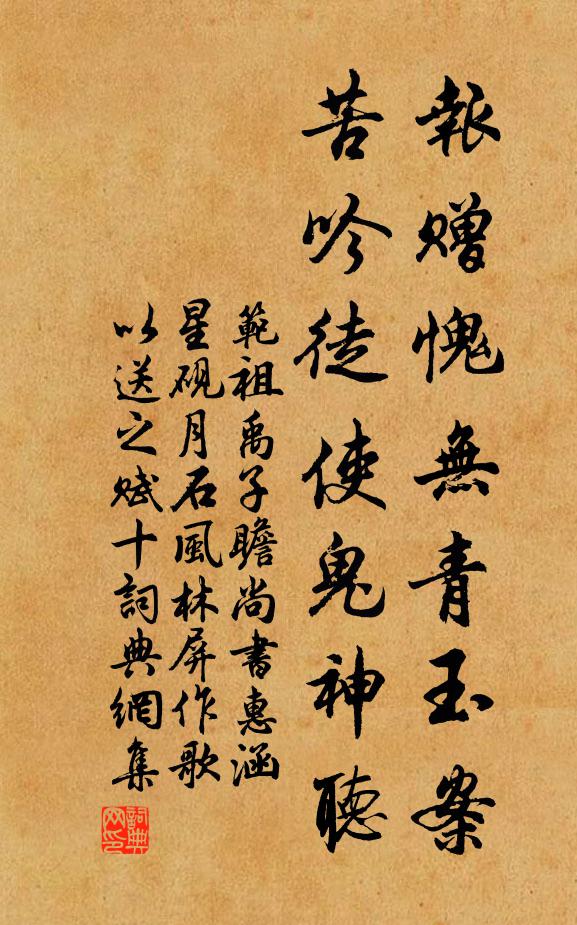 報贈愧無青玉案
苦吟徒使鬼神聽
範祖禹子瞻尚書惠涵
星硯月石風林屏作歌
以送之賦十詞典網集
詞典网印